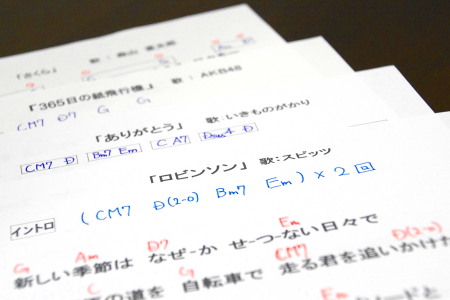 「さくら」 歌：森山 直太朗
「365日の紙飛行機」 歌：AKB48
CM7 D7 G G
「ありがとう」 歌：いきものがかり
CM7 D Bm7 Em C A7 Dsus4 D
「ロビンソン」 歌：スピッツ
イントロ ( CM7 D(2-0) Bm7 Em ) × 2回
G Am D7 Em D(2-0)
新しい季節は なぜ-か せ-つ-ない日々で
C G CM7
の道を 自転車で 走る君を追いかけた